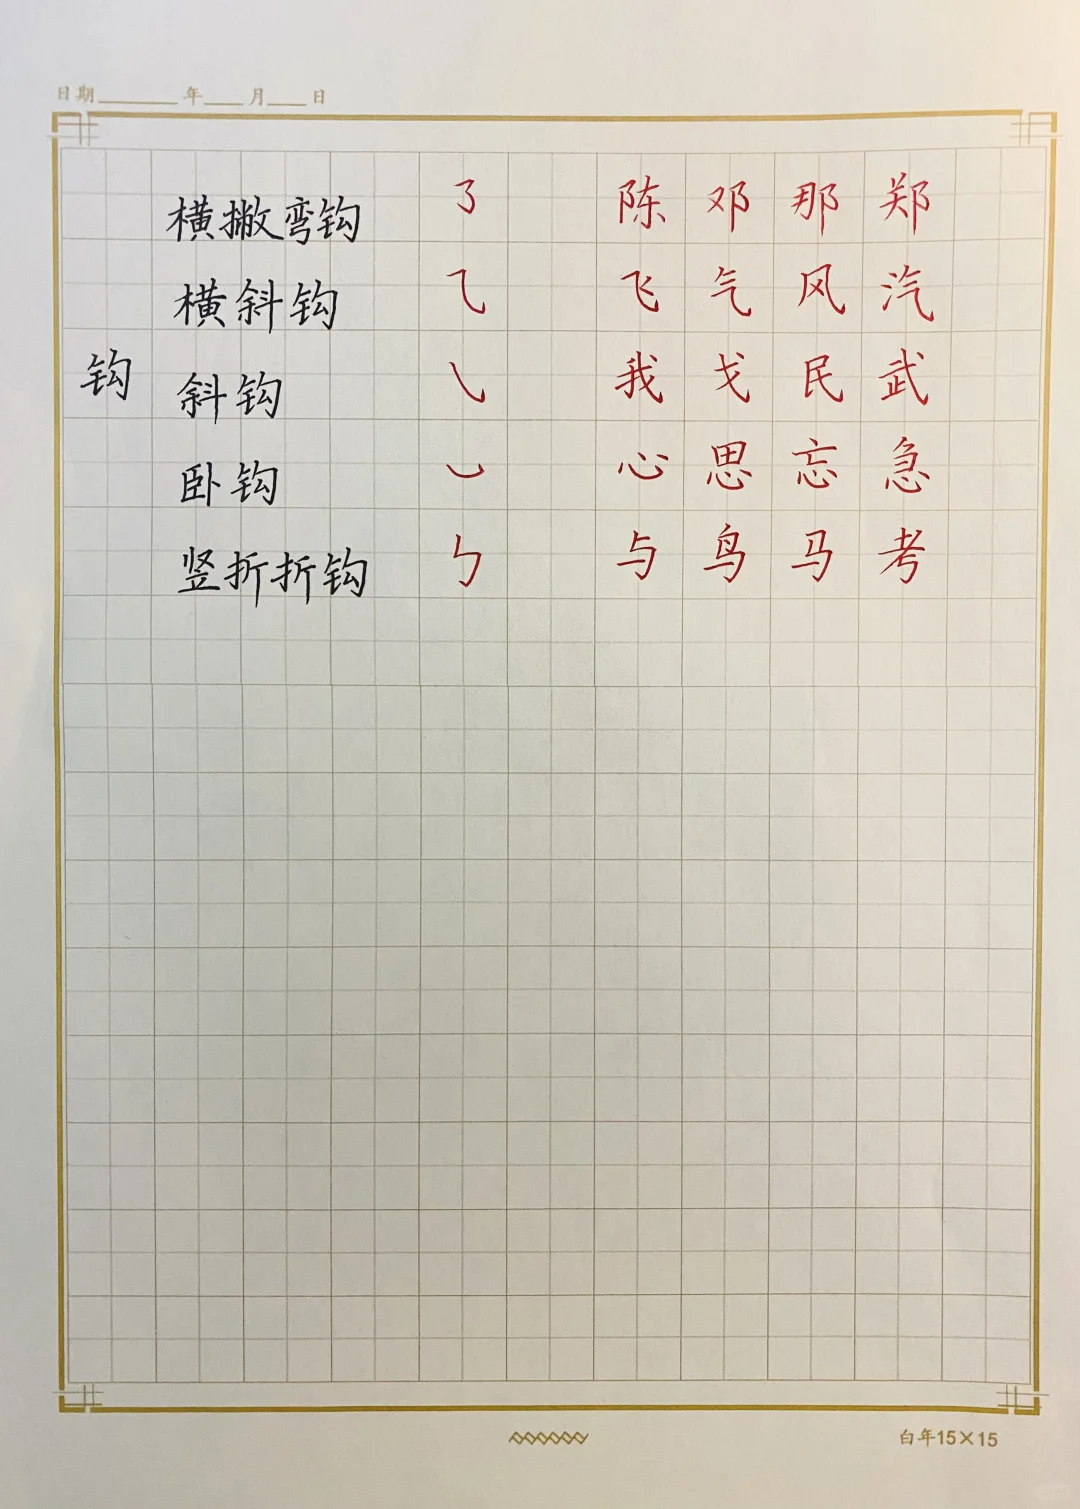 日期 年 月 日
横撇弯钩 ㇌ 陈 邓 那 郑
横斜钩 ⺄ 飞 气 风 汽
钩 斜钩 ㇂ 我 戈 民 武
卧钩 ㇃ 心 思 忘 急
竖折折钩 ㇉ 与 鸟 马 考
白年15×15